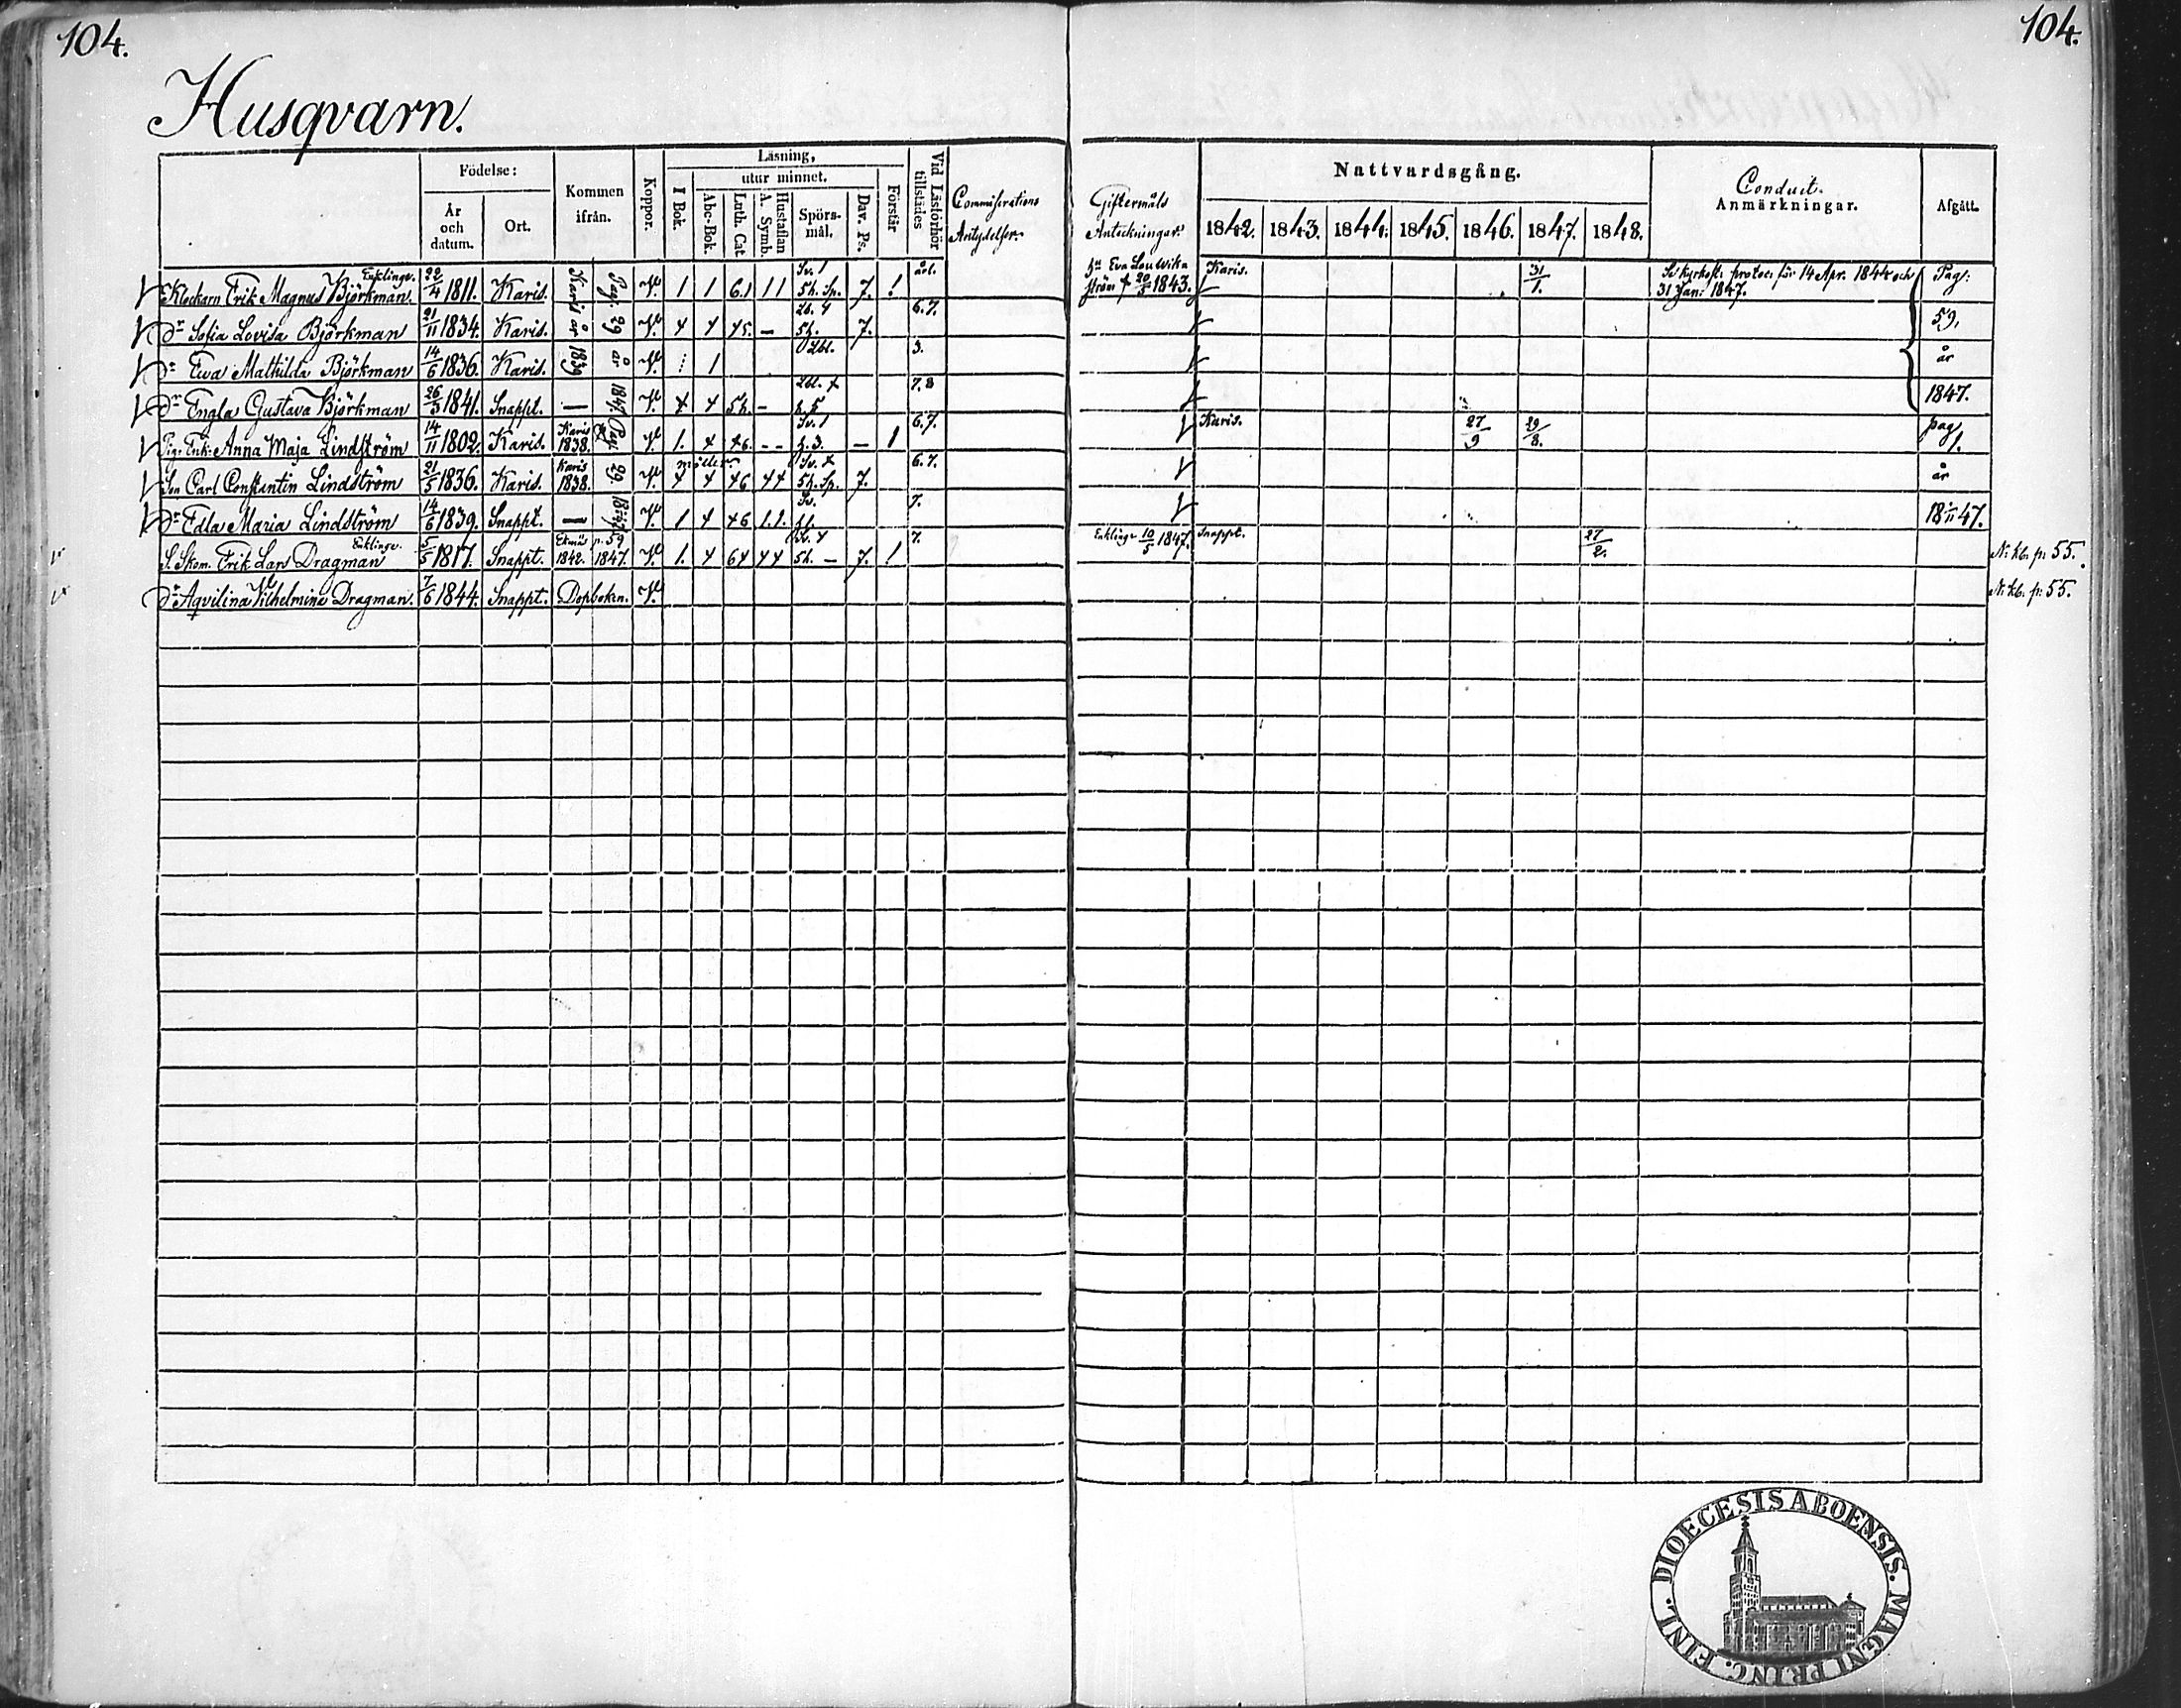 104.
104.
Husqvarn.
Födelse:
År och datum.
Ort.
Kommen ifrån.
Koppor.
Läsning,
utur minnet.
I Bok.
Abc-Bok.
Luth. Cat
Hustaflan A. Symb.
Spörsmål.
Dav. Ps.
Förstår
Vid Läsförhör tillstädes
Commissorations Antydelser.
Giftermåls Anteckningar.
Nattvardsgång.
1842. 1843. 1844. 1845. 1846. 1847. 1848.
Conduit.
Anmärkningar.
Afgått.
Enklinge.
Klockarn Erik Magnus Björkman. 22/4 1811. Karis. Karis år 1839 Pag. 29 år 1847. V. 1 1 6.1 11 Sv. 1 5h. Sp. 7. 1
Eva Lovisa 20/5 1843. Karis. 31/1. Se kyrkoh: protoc: för 14 Apr. 1844 och 31 Jan: 1847. Pag: 59, år 1847.
Dr Sofia Lovisa Björkman 21/11 1834. Karis. V. 4 4 45. — 5h. 7. 6.7.
Dr Eva Mathilda Björkman 14/6 1836. Karis. V. 1 3.
Dr Engla Gustava Björkman 26/3 1841. Snappt. — V. 4 4 5h. - 7.8
Pig. Enk: Anna Maja Lindström 14/11 1802. Karis. Karis 1838. Pag: 29. 1847. V. 1. 4 46. -- Sv. 1 — 1 6.7. Karis. 27/9 29/8. pag 1. år 18 11 47.
Son Carl Constantin Lindström 21/5 1836. Karis. Karis 1838. V. 4 4 46 44 5h. Sp. 7. 6.7.
Dr Edla Maria Lindström 14/6 1839. Snappt. — V. 1 4 46 1.1. Sv. 7.
Enklinge.
S. Skom. Erik Lars Dragman 5/5 1817. Snappt. Ekenäs 1842. p. 59 1847. V. 1. 4 64 44 5h. — 7. 1 7. Enklinge 10/5 1847. Snappt. 27/2. N: kb. p: 55.
Dr Aqvilina Vilhelmina Dragman. 7/6 1844. Snappt. Dopboken. V. N: kb. p: 55.
DIOECESIS ABOENSIS. MAGNI PRINC. FINL.